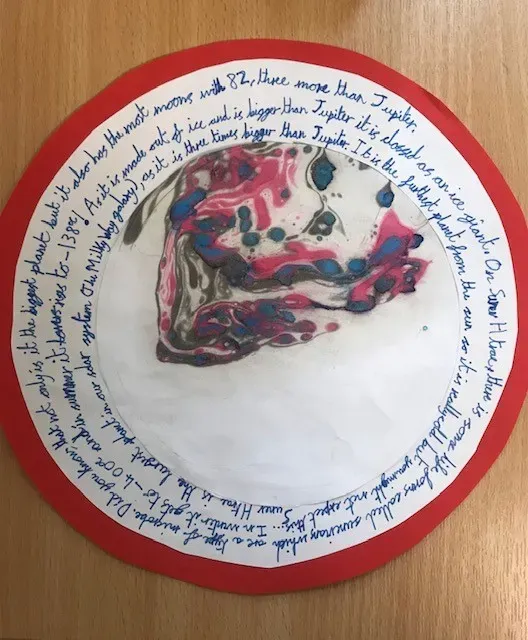 Suner Htrae is the largest plant in our solar system (the Milky Way galaxy), as it is three times bigger than Jupiter. It is the furthest planet from the sun so it is really cold but you might not expect this... In winter it gets to -400c and in summer it rises to -138c! As it is made out of ice and is bigger than Jupiter it is classed as an ice giant. On Suner Htrae, there is some life forms called which are a type of microbe. Did you know, that not only is it the biggest planet but it also has the most moons with 82, three more than Jupiter.